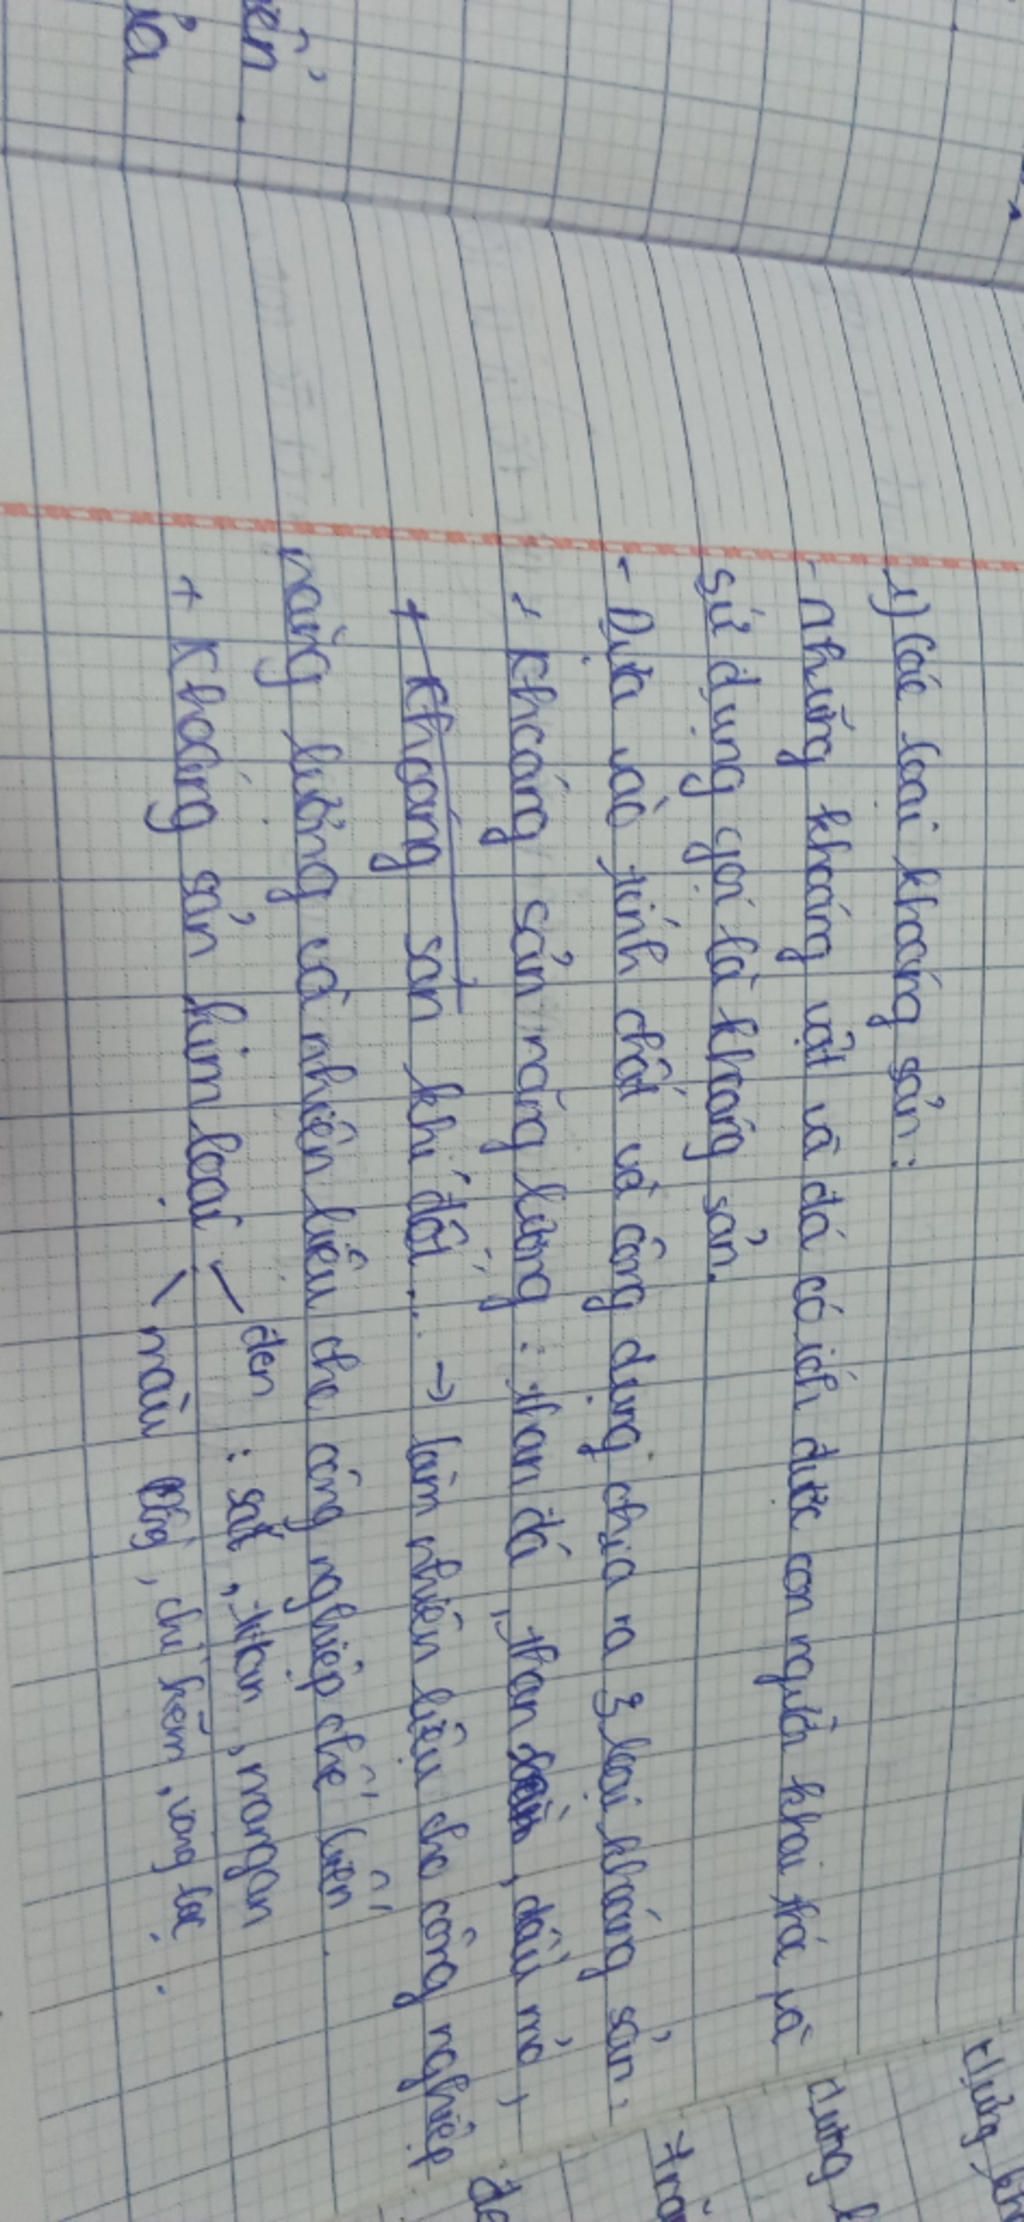 1) Các loại khoáng sản :
- Những khoáng vật và đá có ích được con người khai thác và
sử dụng gọi là khoáng sản.
- Dựa vào tính chất và công dụng chia ra 3 loại khoáng sản.
+ Khoáng sản năng lượng : than đá, than bùn, dầu mỏ,
+ Khoáng sản khí đốt ... → làm nhiên liệu cho công nghiệp
năng lượng và nhiên liệu cho công nghiệp chế biến.
+ Khoáng sản kim loại
đen : sắt, titan, mangan
màu đồng, chì kẽm, vàng bạc.